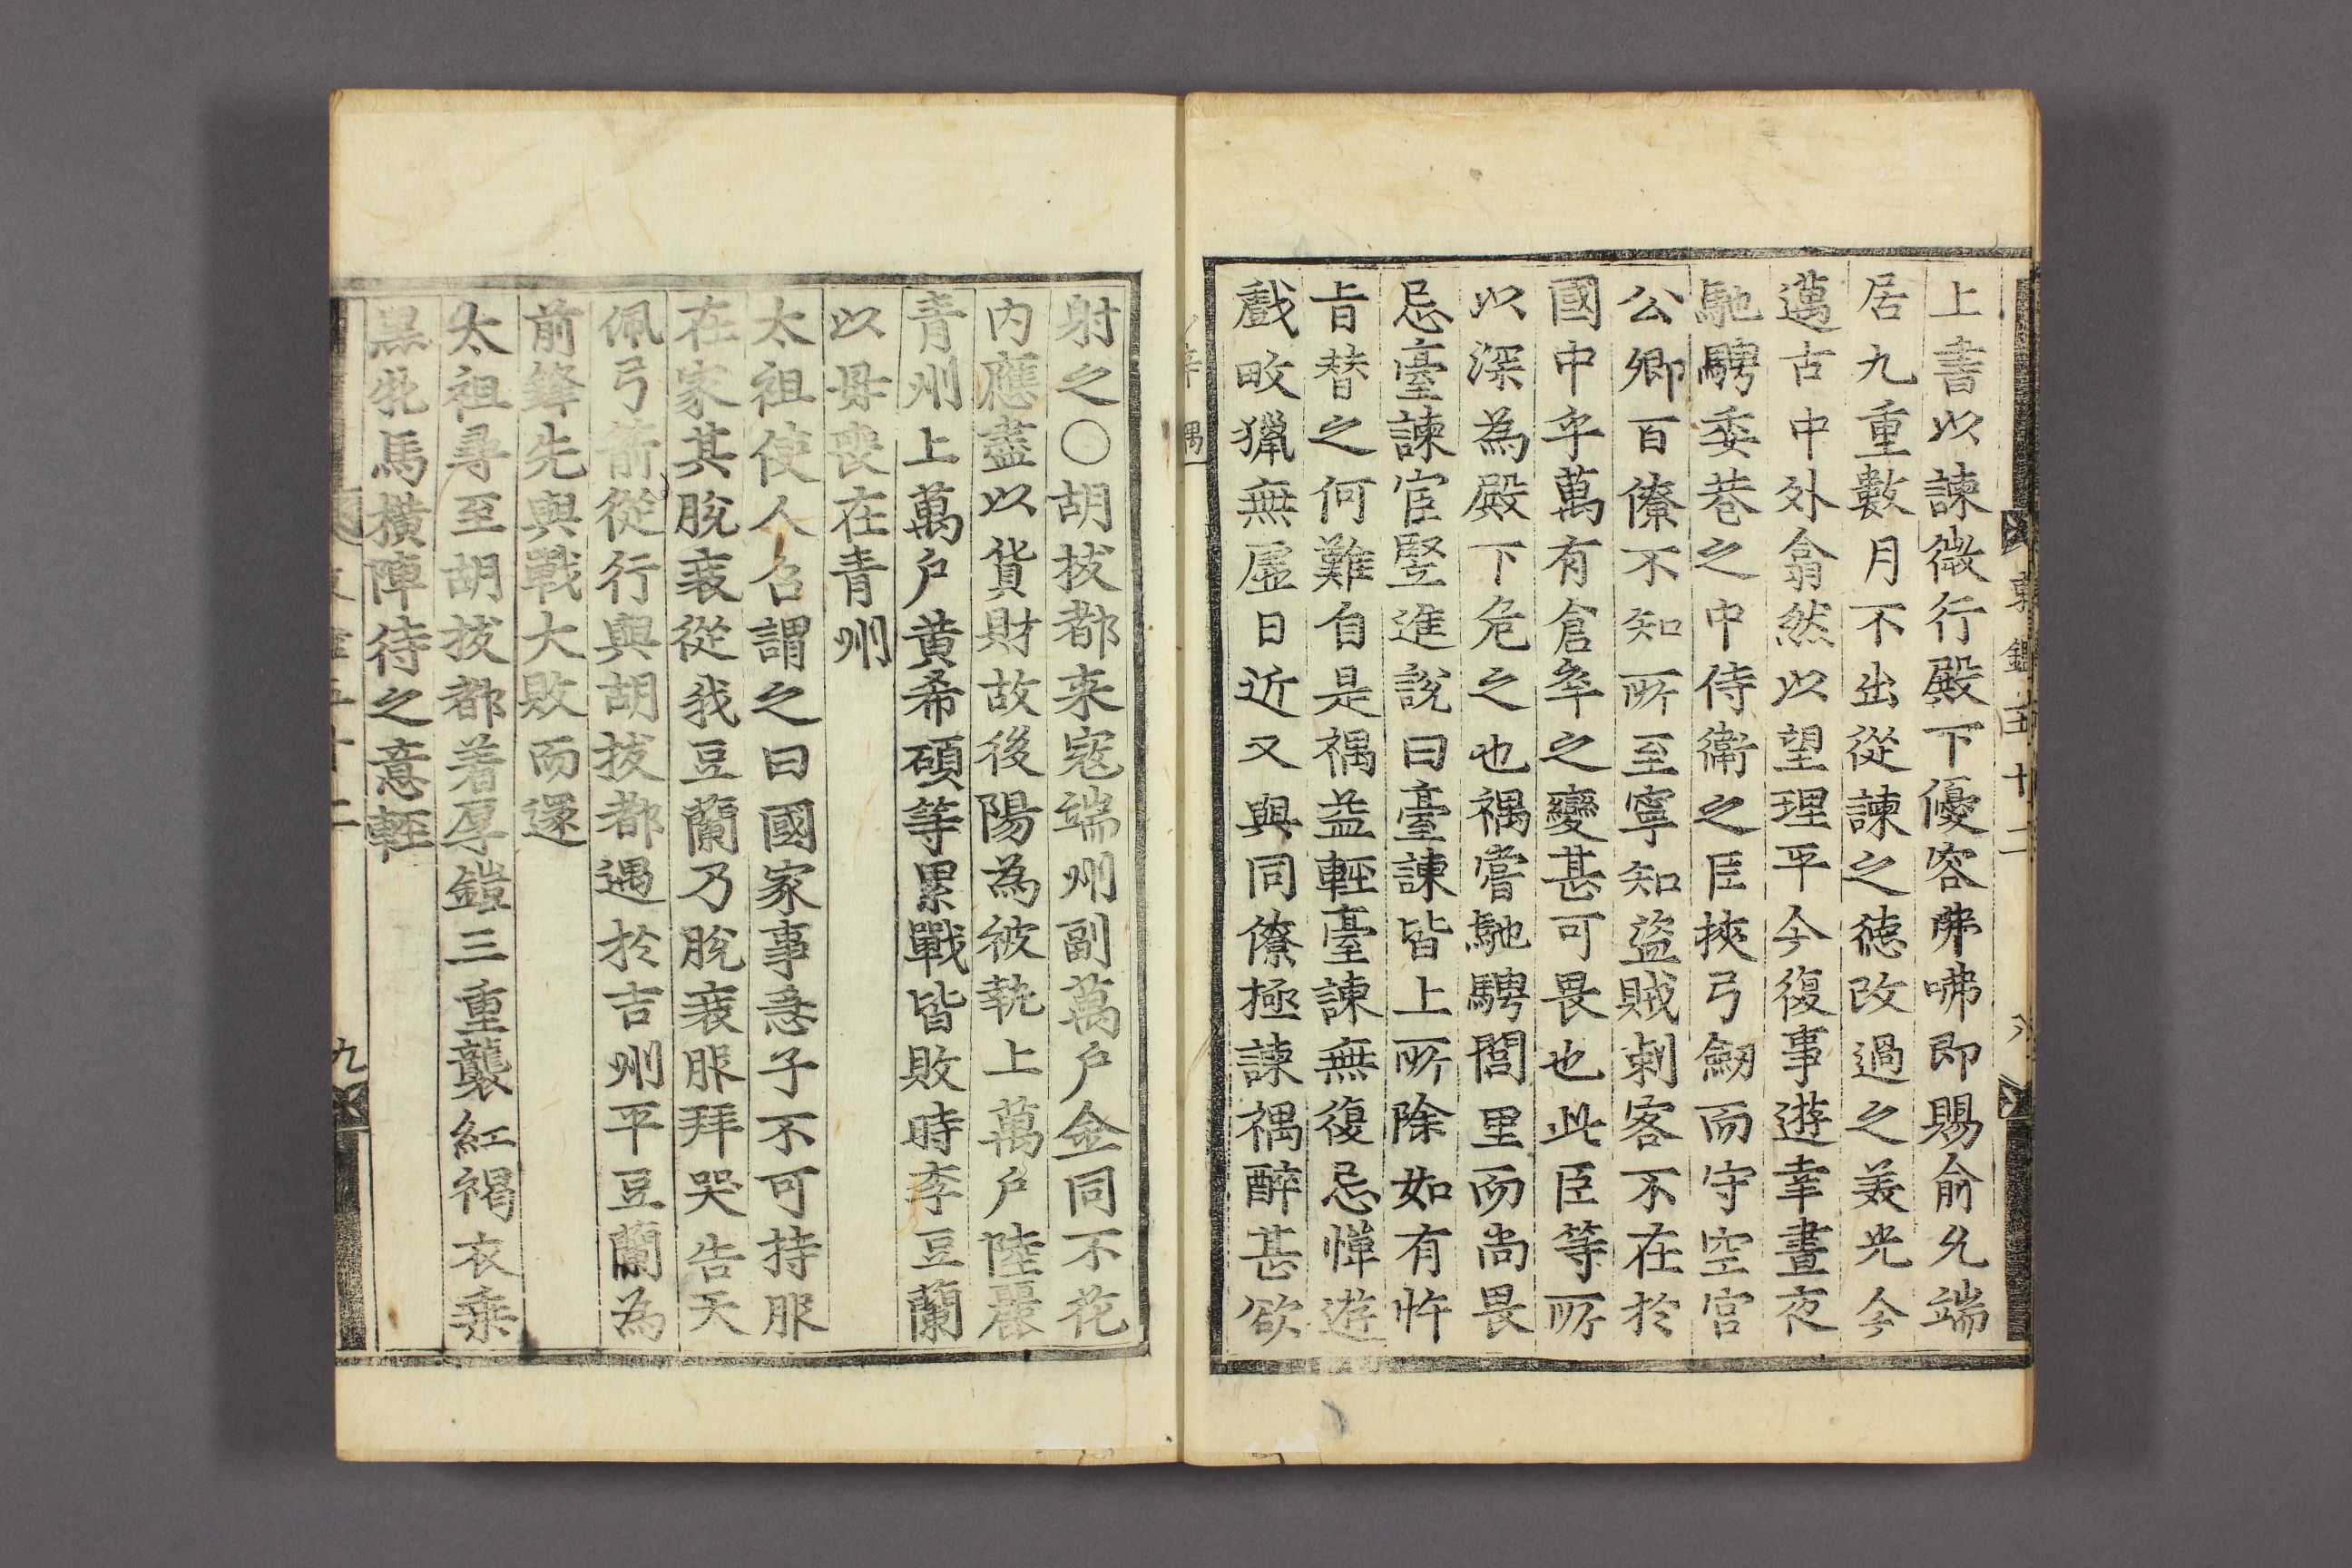 上書以諫微行殿下優容咈咈即賜俞允端
居九重數月不出從諫之徳改過之美光今
邁古中外翕然以望理平今復事遊幸晝夜
馳騁委巷之中侍衛之臣挾弓劒而守空宮
公卿百僚不知所至寧知盜賊刺客不在於
國中乎萬有倉卒之變甚可畏也此臣等所
以深為殿下危之也禑嘗馳騁閭里而尚畏
忌臺諫宦竪進說曰臺諫皆上所除如有忤
旨替之何難自是禑益輕臺諫無復忌憚遊
戲畋獵無虛日近又與同僚極諫禑醉甚欲
辛禑
射之〇胡拔都来寇端州副萬戶金同不花
内應盡以貨財故後陽為被執上萬戶陸麗
青州上萬戶黄希碩等累戰皆敗時李豆蘭
以毋喪在青州
太祖使人召謂之曰國家事急子不可持服
在家其脫衰從我豆蘭乃脫衰服拜哭告天
佩弓箭從行與胡拔都遇於吉州平豆蘭為
前鋒先與戰大敗而還
太祖尋至胡拔都着厚鎧三重襲紅褐衣乗
黒牝馬橫陣待之意輕
九